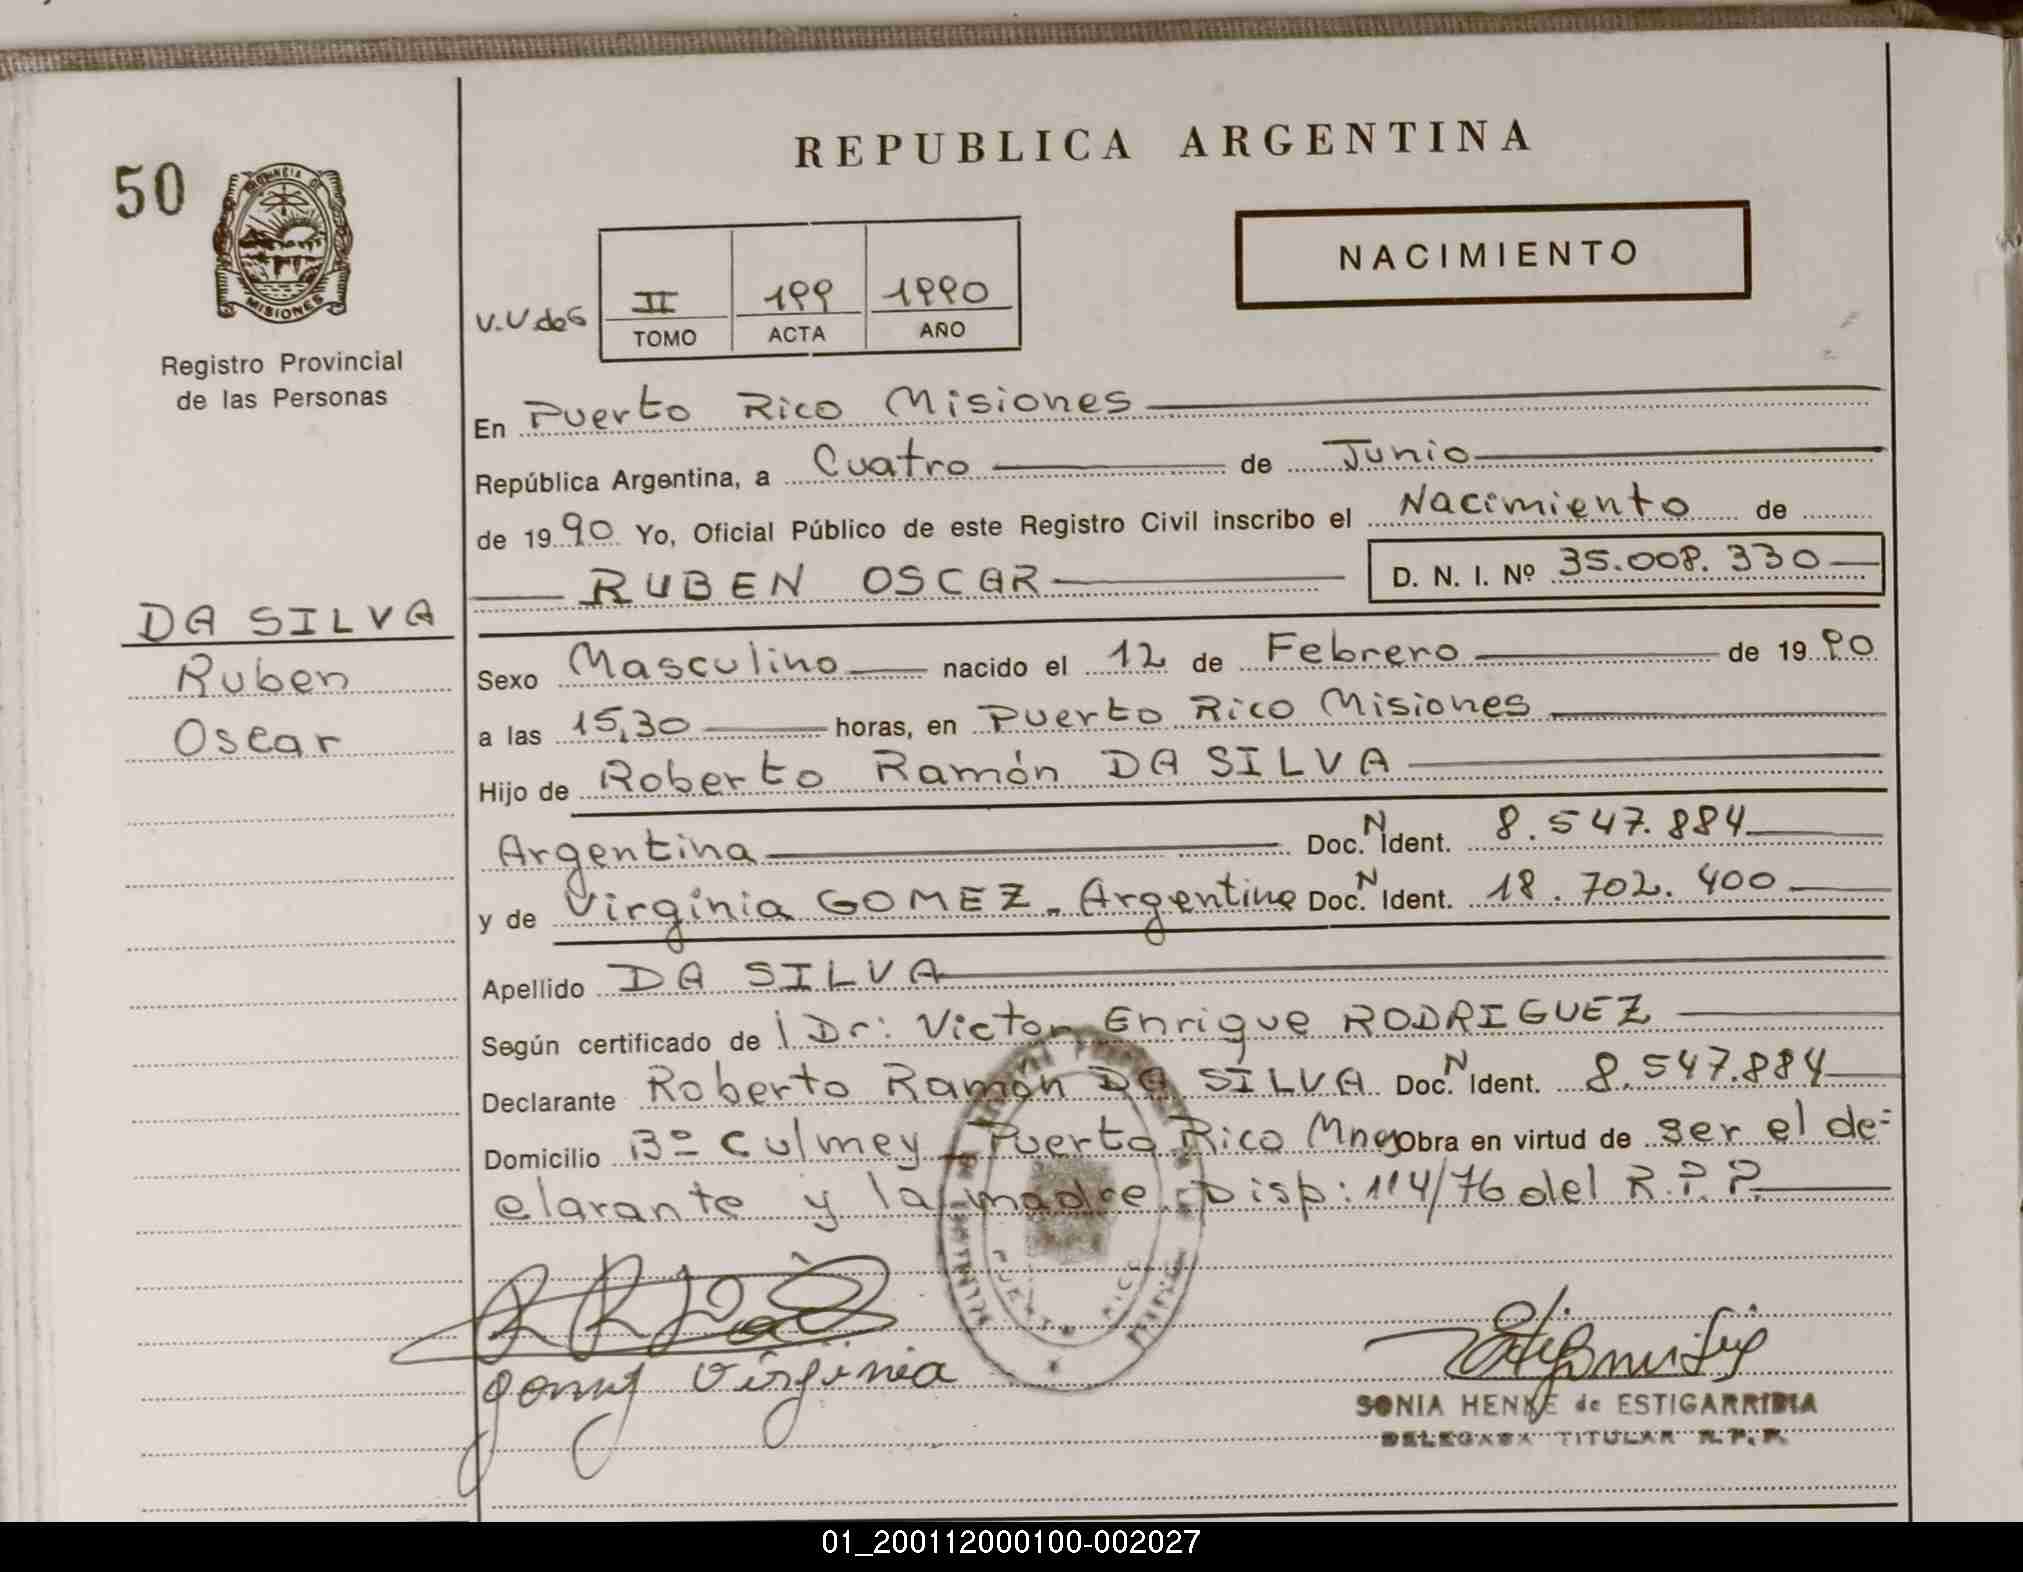 REPUBLICA ARGENTINA
50
PROVINCIA DE
MISIONES
Registro Provincial
de las Personas
NACIMIENTO
V.V.deG
II 199 1990
TOMO ACTA AÑO
En Puerto Rico Misiones
República Argentina, a Cuatro de Junio
de 1990 Yo, Oficial Público de este Registro Civil inscribo el Nacimiento de
RUBEN OSCAR D. N. I. Nº 35.008.330
DA SILVA
Ruben
Oscar
Sexo Masculino nacido el 12 de Febrero de 1990
a las 15,30 horas, en Puerto Rico Misiones
Hijo de Roberto Ramón DA SILVA
Argentina Doc. N Ident. 8.547.884
y de Virginia GOMEZ - Argentina Doc. N Ident. 18.702.400
Apellido DA SILVA
Según certificado de l Dr: Victor Enrique RODRIGUEZ
Declarante Roberto Ramón DA SILVA Doc. N Ident. 8.547.884
Domicilio Bº Culmey - Puerto Rico Mnes Obra en virtud de ser el de-
clarante y la madre. Disp: 114/76 del R.P.P.
PUERTO RICO
Gomez Virginia
SONIA HENKE de ESTIGARRIBIA
DELEGADA TITULAR R.P.P.
01_200112000100-002027